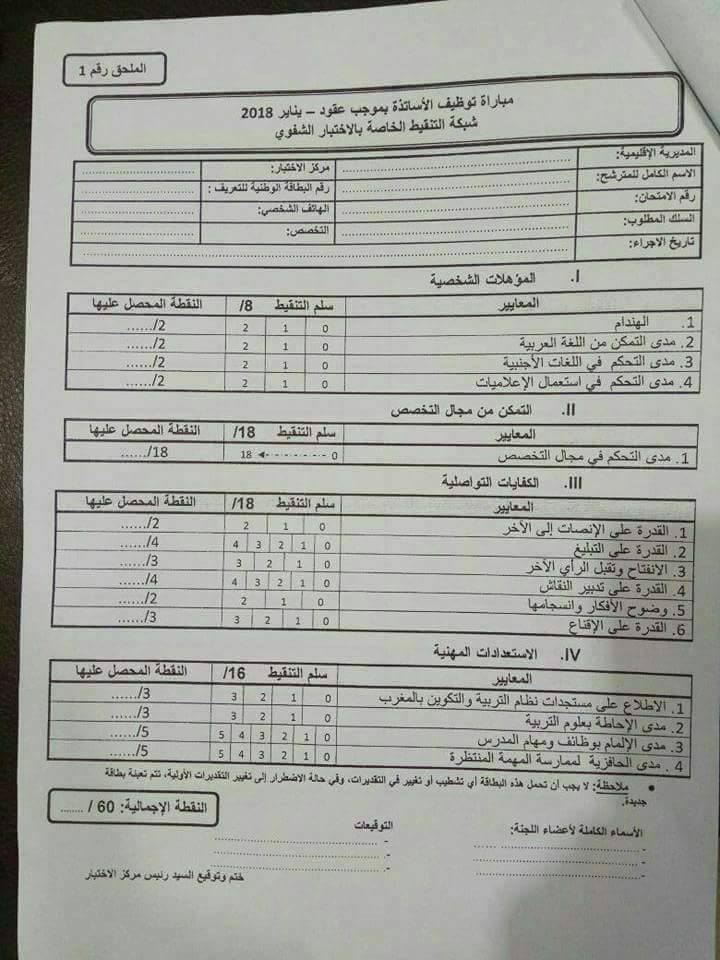 الملحق رقم 1
مباراة توظيف الأساتذة بموجب عقود – يناير 2018
شبكة التنقيط الخاصة بالاختبار الشفوي
المديرية الإقليمية: مركز الاختبار:
الاسم الكامل للمترشح: رقم البطاقة الوطنية للتعريف :
رقم الامتحان: الهاتف الشخصي:
السلك المطلوب: التخصص:
تاريخ الاجراء:
I. المؤهلات الشخصية
المعايير سلم التنقيط /8 النقطة المحصل عليها
1. الهندام 0 1 2 ....../2
2. مدى التمكن من اللغة العربية 0 1 2 ....../2
3. مدى التحكم في اللغات الأجنبية 0 1 2 ....../2
4. مدى التحكم في استعمال الإعلاميات 0 1 2 ....../2
II. التمكن من مجال التخصص
المعايير سلم التنقيط /18 النقطة المحصل عليها
1. مدى التحكم في مجال التخصص 0 -------◄ 18 ....../18
III. الكفايات التواصلية
المعايير سلم التنقيط /18 النقطة المحصل عليها
1. القدرة على الإنصات إلى الآخر 0 1 2 ....../2
2. القدرة على التبليغ 0 1 2 3 4 ....../4
3. الانفتاح وتقبل الرأي الآخر 0 1 2 3 ....../3
4. القدرة على تدبير النقاش 0 1 2 3 4 ....../4
5. وضوح الأفكار وانسجامها 0 1 2 ....../2
6. القدرة على الإقناع 0 1 2 3 ....../3
IV. الاستعدادات المهنية
المعايير سلم التنقيط /16 النقطة المحصل عليها
1. الاطلاع على مستجدات نظام التربية والتكوين بالمغرب 0 1 2 3 ....../3
2. مدى الإحاطة بعلوم التربية 0 1 2 3 ....../3
3. مدى الإلمام بوظائف ومهام المدرس 0 1 2 3 4 5 ....../5
4 . مدى الحافزية لممارسة المهمة المنتظرة 0 1 2 3 4 5 ....../5
• ملاحظة: لا يجب أن تحمل هذه البطاقة أي تشطيب أو تغيير في التقديرات، وفي حالة الاضطرار إلى تغيير التقديرات الأولية، تتم تعبئة بطاقة
جديدة.
النقطة الإجمالية: 60 / ........
الأسماء الكاملة لأعضاء اللجنة: التوقيعات
ختم وتوقيع السيد رئيس مركز الاختبار